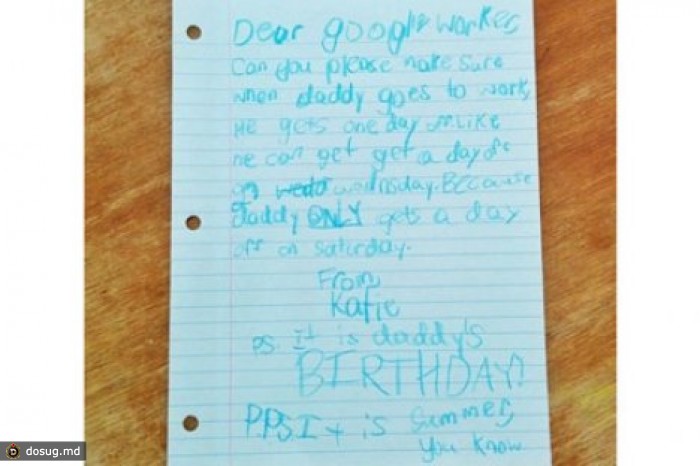 Dear google worker,
Can you please make sure
when daddy goes to work,
He gets one day off. Like
he can get get a day off
on wedo wednsday. Because
daddy ONLY gets a day
off on saturday.
From,
Katie
P.S. It is daddy's
BIRTHDAY!
P.P.S. It is summer,
you know
dosug.md